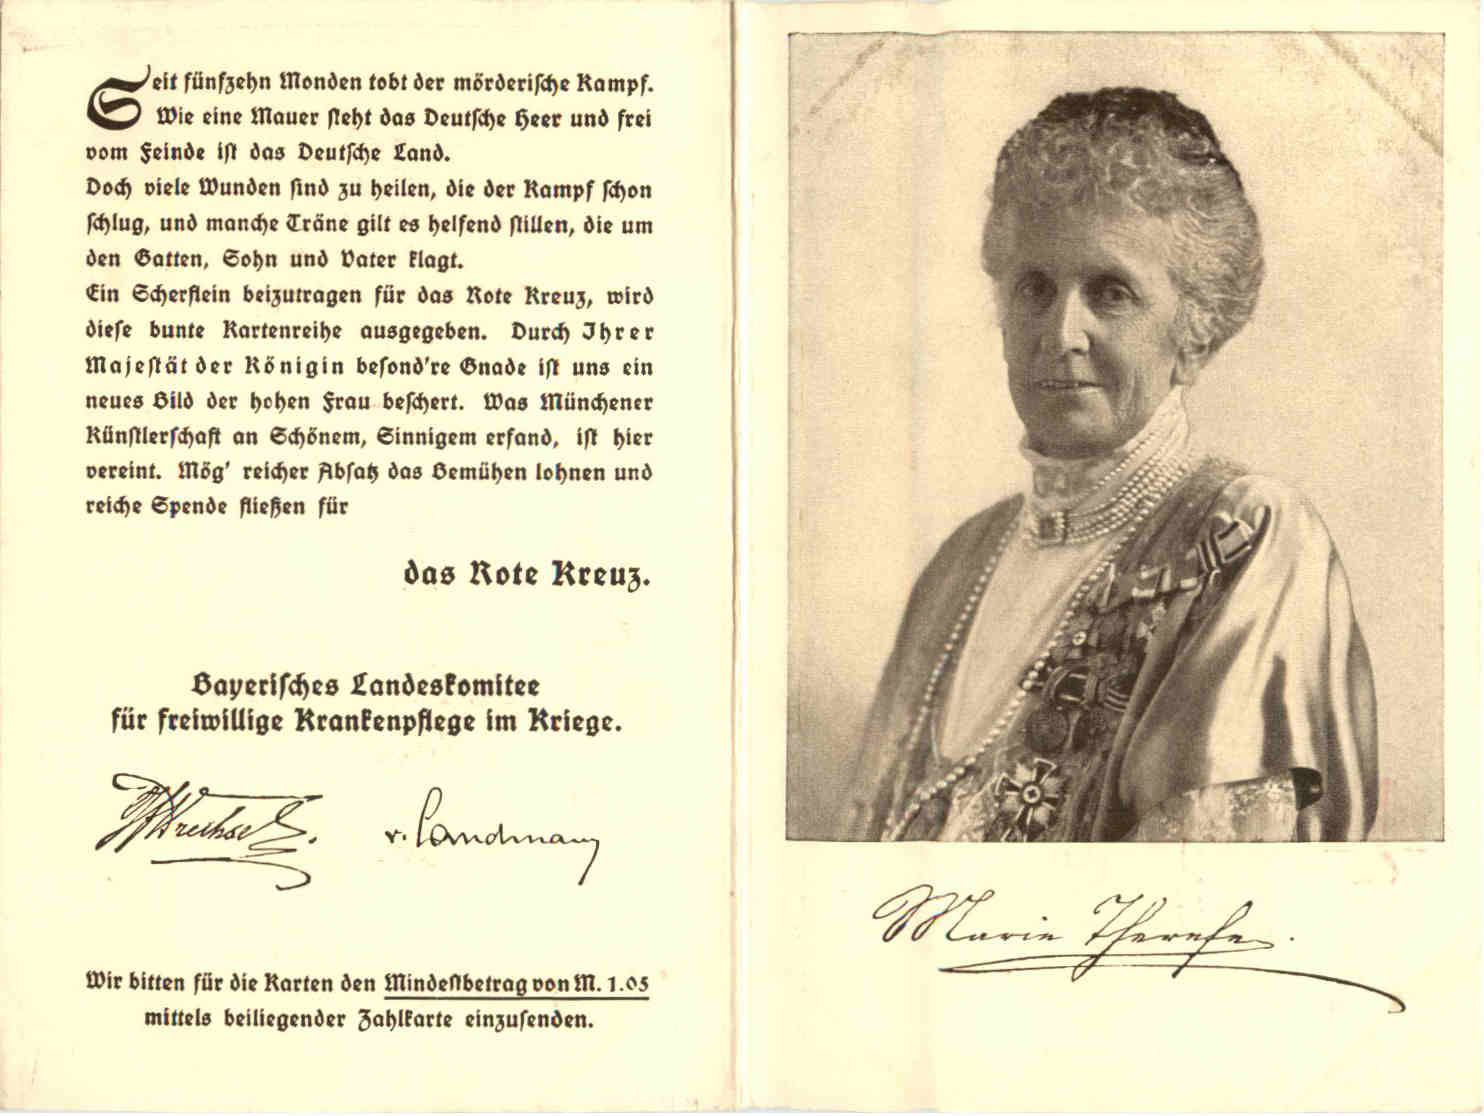 Seit fünfzehn Monden tobt der mörderische Kampf.
Wie eine Mauer steht das Deutsche Heer und frei
vom Feinde ist das Deutsche Land.
Doch viele Wunden sind zu heilen, die der Kampf schon
schlug, und manche Träne gilt es helfend stillen, die um
den Gatten, Sohn und Vater klagt.
Ein Scherflein beizutragen für das Rote Kreuz, wird
diese bunte Kartenreihe ausgegeben. Durch Ihrer
Majestät der Königin besond're Gnade ist uns ein
neues Bild der hohen Frau beschert. Was Münchener
Künstlerschaft an Schönem, Sinnigem erfand, ist hier
vereint. Mög' reicher Absatz das Bemühen lohnen und
reiche Spende fließen für
das Rote Kreuz.
Bayerisches Landeskomitee
für freiwillige Krankenpflege im Kriege.
v. Landmann
Wir bitten für die Karten den Mindestbetrag von M. 1.05
mittels beiliegender Zahlkarte einzusenden.
Marie Therese.